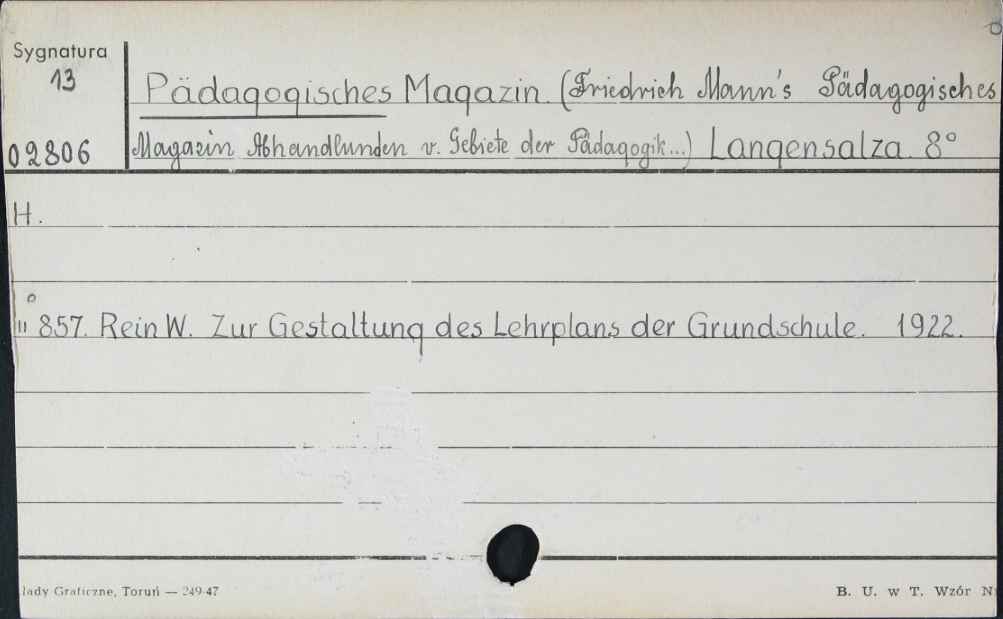 Sygnatura
13
Pädagogisches Magazin. (Friedrich Mann's Pädagogisches
02806
Magazin Abhandlunden v. Gebiete der Pädagogik...) Langensalza. 8°
H.
" 857. Rein W. Zur Gestaltung des Lehrplans der Grundschule. 1922.
łady Graficzne, Toruń — 249-47
B. U. w T. Wzór N